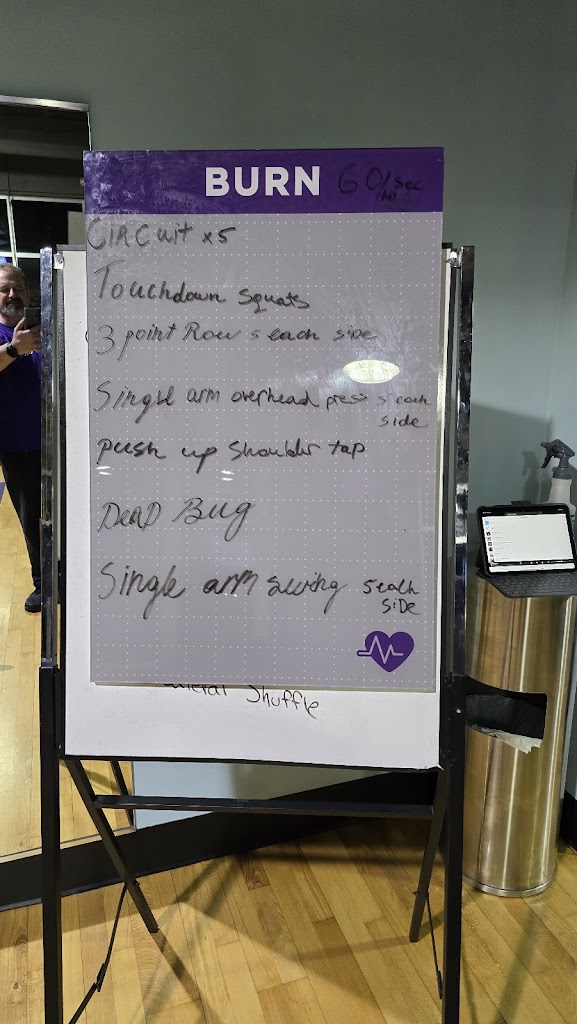 BURN 60/sec
CIRCUIT x5
Touchdown squats
3 point Row 5 each side
Single arm overhead press 5 each
side
push up shoulder tap
DEAD BUG
Single arm swing 5 each
SIDE
Shuffle